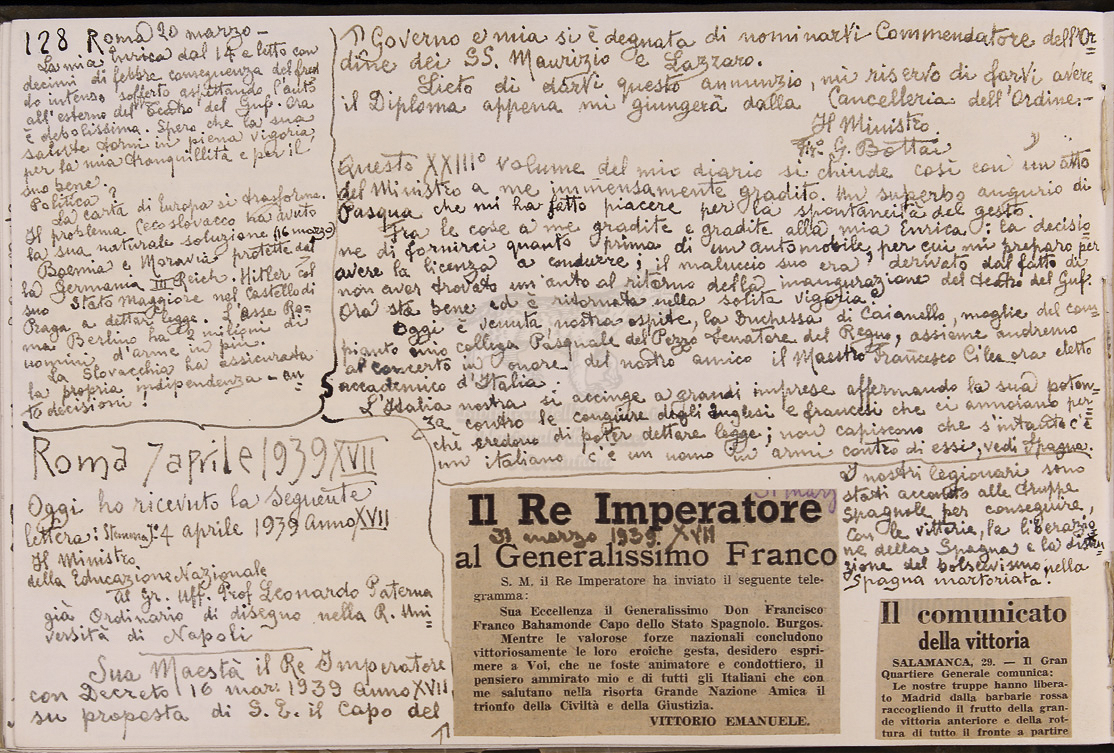 128 Roma 20 marzo -
La mia Enrica dal 14 è a letto con
decimi di febbre conseguenza del fred
do intenso sofferto aspettando l'auto
all'esterno del Teatro del Guf. Ora
è debolissima. Spero che la sua
salute torni in piena vigoria
per la mia tranquillità e per il
suo bene.
Politica?
La carta di Europa si trasforma.
Il problema Cecoslovacco ha avuto
la sua naturale soluzione (16 marzo)
Boemia e Moravia protette dal
la Germania III Reich. Hitler col
suo Stato Maggiore nel Castello di
Praga a dettar legge. L'asse Ro=
ma Berlino ha 12 milioni di
uomini d'arme in più.
La Slovacchia ha assicurata
la propria indipendenza -
decisioni!
Roma 7 aprile 1939 XVII
Oggi ho ricevuto la seguente
lettera: 4 aprile 1939 Anno XVII
Il Ministro
della Educazione Nazionale
Al Gr. Uff. Prof. Leonardo Paterna
già Ordinario di disegno nella R. Uni=
versità di Napoli
Sua Maestà il Re Imperatore
con Decreto 16 mar. 1939 Anno XVII
su proposta di S. E. il Capo del
Governo e mia si è degnata di nominarVi Commendatore dell'Or=
dine dei SS. Maurizio e Lazzaro.
Lieto di darVi questo annunzio, mi riservo di farVi avere
il Diploma appena mi giungerà dalla Cancelleria dell'Ordine:-
Il Ministro
G. Bottai
Questo XXIII° volume del mio diario si chiude così con un atto
del Ministro a me immensamente gradito. Un superbo augurio di
Pasqua che mi ha fatto piacere per la spontaneità del gesto.
Fra le cose a me gradite e gradite alla mia Enrica: la decisio=
ne di fornirci quanto prima di un automobile, per cui mi preparo per
avere la licenza a condurre; il maluccio suo era derivato dal fatto di
non aver trovato un auto al ritorno della inaugurazione del teatro del Guf.
Ora sta bene ed è ritornata nella solita vigoria.
Oggi è venuta, nostra ospite, la Duchessa di Caianello, moglie del com=
pianto mio collega Pasquale del Pezzo Senatore del Regno, assieme andremo
al concerto in onore del nostro amico il Maestro Francesco Cilea ora eletto
accademico d'Italia.
L'Italia nostra si accinge a grandi imprese affermando la sua poten=
za contro le congiure degli Inglesi e francesi che ci annoiano per=
chè credono di poter dettare legge; non capiscono che s'intanto c'è
un italiano c'è un uomo in armi contro di essi, vedi Spagna.
I nostri legionari sono
stati accanto alle truppe
Spagnole per conseguire,
con le vittorie, la liberazio
ne della Spagna e la distru=
zione del bolscevismo nella
Spagna martoriata!
31 marz
Il Re Imperatore
31 marzo 1939 XVII
al Generalissimo Franco
S. M. il Re Imperatore ha inviato il seguente tele-
gramma:
Sua Eccellenza il Generalissimo Don Francisco
Franco Bahamonde Capo dello Stato Spagnolo. Burgos.
Mentre le valorose forze nazionali concludono
vittoriosamente le loro eroiche gesta, desidero espri-
mere a Voi, che ne foste animatore e condottiero, il
pensiero ammirato mio e di tutti gli Italiani che con
me salutano nella risorta Grande Nazione Amica il
trionfo della Civiltà e della Giustizia.
VITTORIO EMANUELE.
Il comunicato
della vittoria
SALAMANCA, 29. — Il Gran
Quartiere Generale comunica:
Le nostre truppe hanno libera-
to Madrid dalla barbarie rossa
raccogliendo il frutto della gran-
de vittoria anteriore e della rot-
tura di tutto il fronte a partire